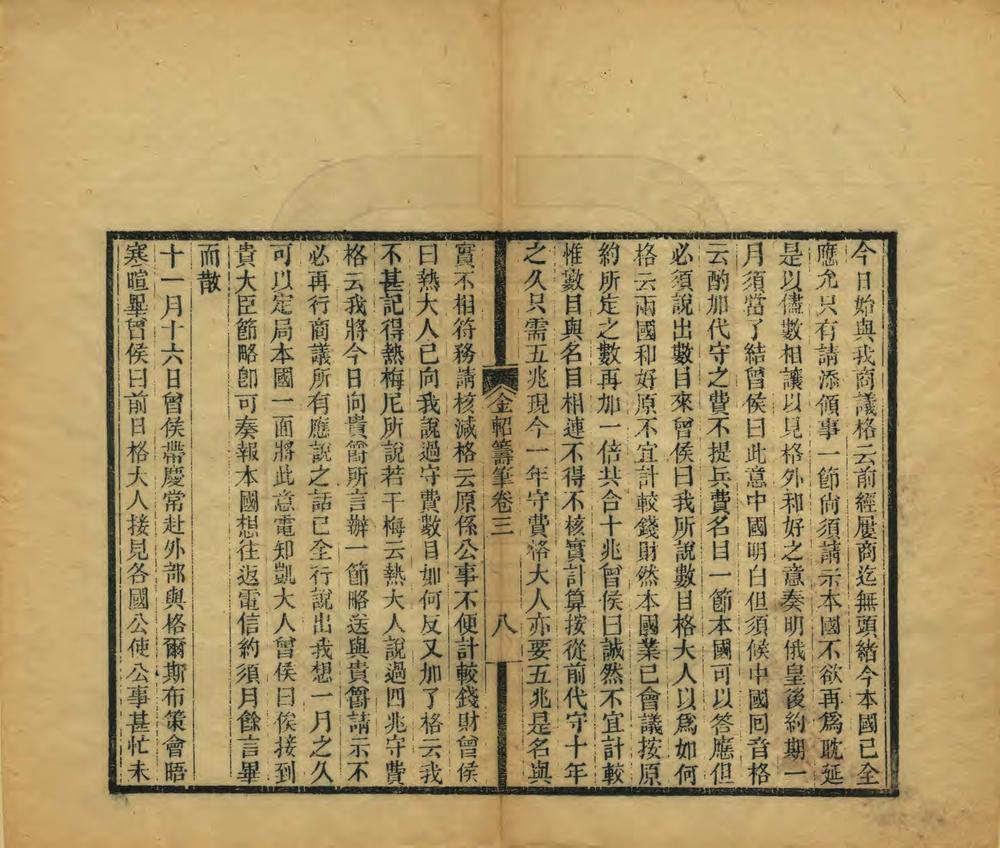 今日始與我商議格云前經屢商迄無頭緒今本國已全
應允只有請添領事一節尙須請示本國不欲再爲耽延
是以儘數相讓以見格外和好之意奏明俄皇後約期一
月須當了結曾侯曰此意中國明白但須候中國回音格
云酌加代守之費不提兵費名目一節本國可以答應但
必須說出數目來曾侯曰我所說數目格大人以爲如何
格云兩國和好原不宜計較錢財然本國業已會議按原
約所定之數再加一倍共合十兆曾侯曰誠然不宜計較
惟數目與名目相連不得不核實計算按從前代守十年
之久只需五兆現今一年守費格大人亦要五兆是名與
金軺籌筆卷三 八
實不相符務請核減格云原係公事不便計較錢財曾侯
曰熱大人已向我說過守費數目如何反又加了格云我
不甚記得熱梅尼所說若干梅云熱大人說過四兆守費
格云我將今日向貴爵所言辦一節略送與貴爵請示不
必再行商議所有應說之話已全行說出我想一月之久
可以定局本國一面將此意電知凱大人曾侯曰俟接到
貴大臣節略卽可奏報本國想往返電信約須月餘言畢
而散
十一月十六日曾侯帶慶常赴外部與格爾斯布策會晤
寒暄畢曾侯曰前日格大人接見各國公使公事甚忙未